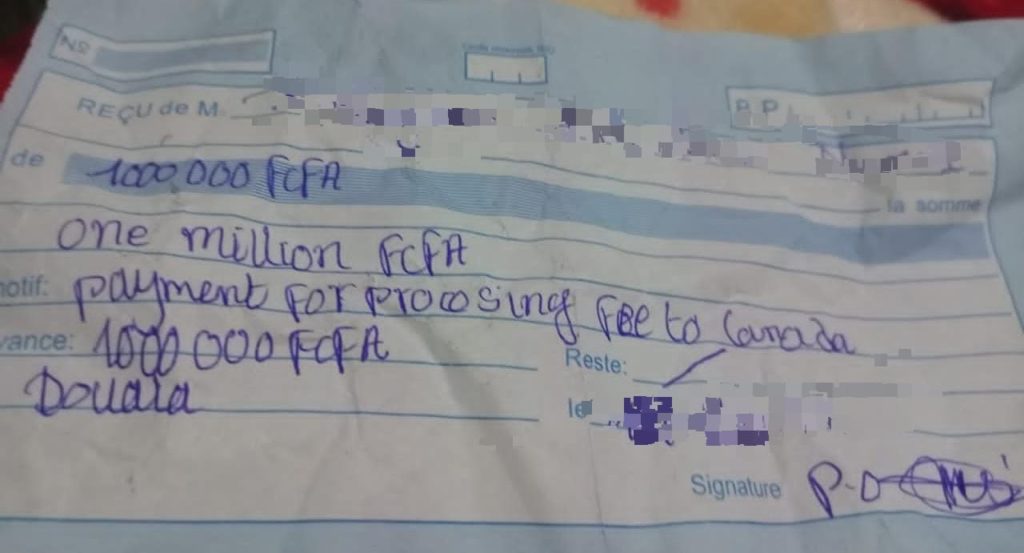 No
REÇU de M.
B.P.
de 1000 000 FCFA
la somme
one million FCFA
motif: payment for procosing Fee to Canada
vance: 1000 000 FCFA
Reste:
Douala
le
Signature P.O